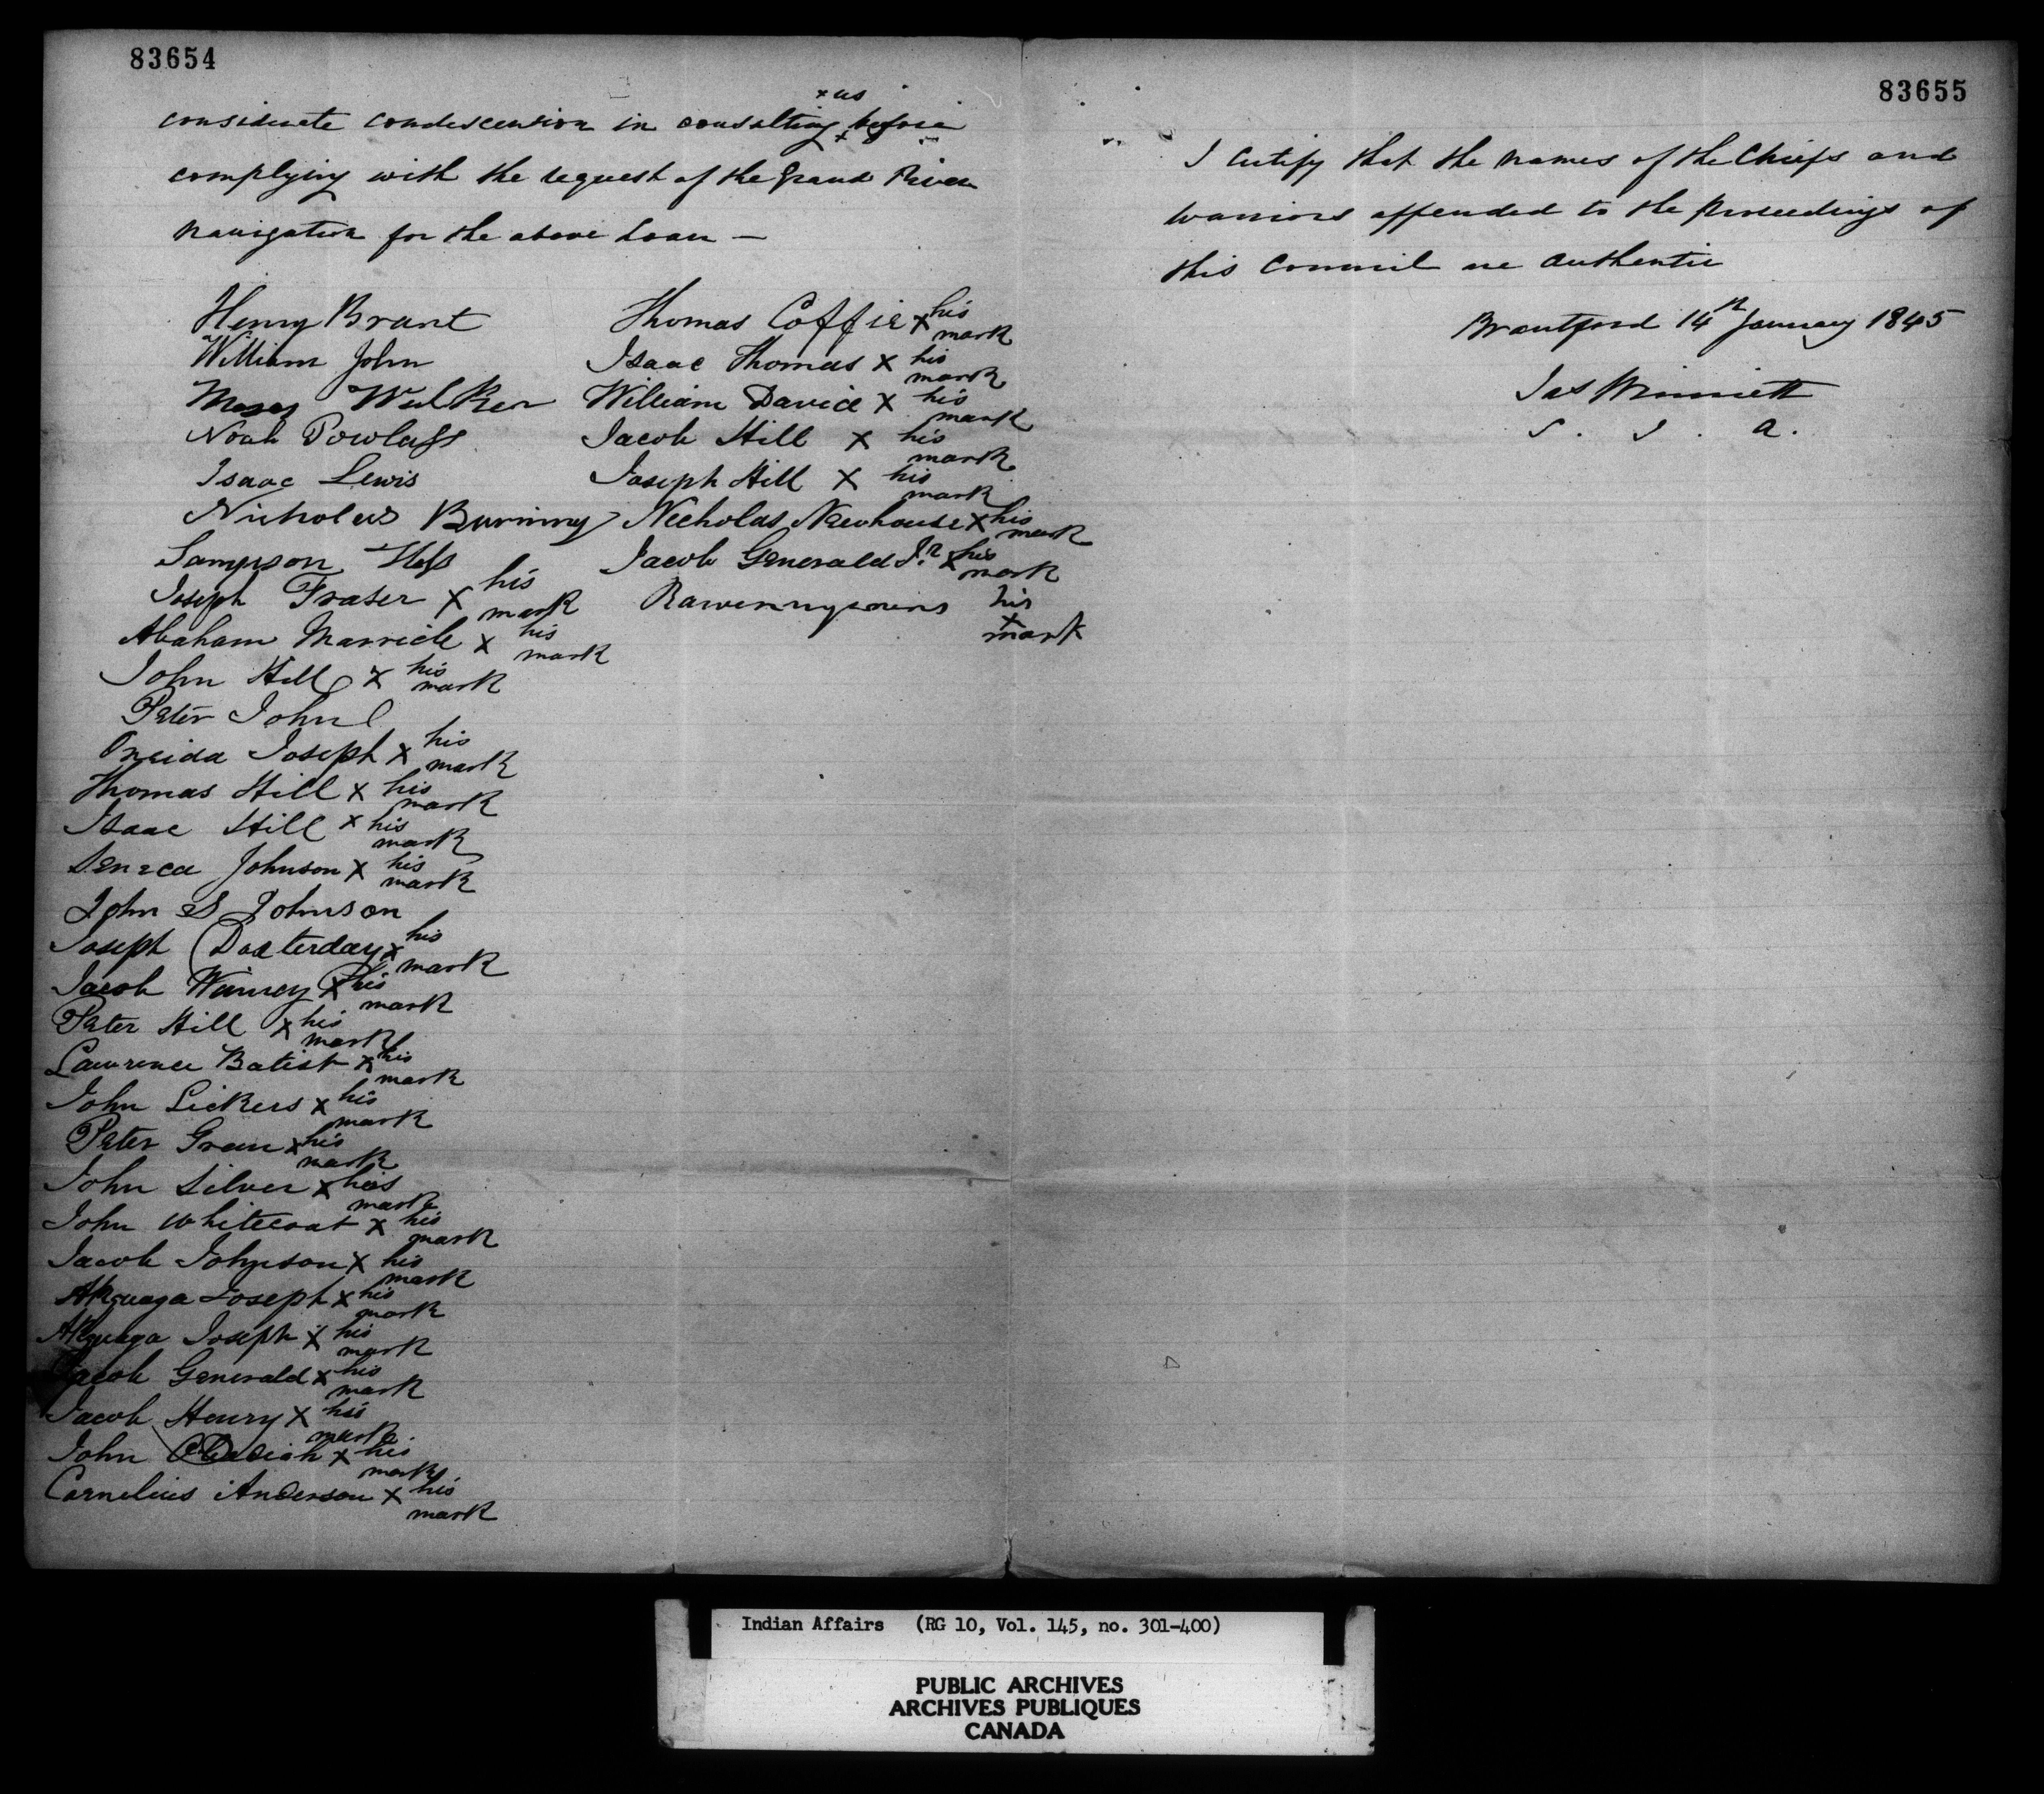 83654
considerate condescension in consulting us before
complying with the request of the Grand River
navigation for the above Loan —
Henry Brant
William John
Moses Walker
Noah Powlass
Isaac Lewis
Nicholas Burning
Sampson Hess
Joseph Fraser x his mark
Abaham Marricle x his mark
John Hill x his mark
Peter John
Oneida Joseph x his mark
Thomas Hill x his mark
Isaac Hill x his mark
Seneca Johnson x his mark
John S Johnson
Joseph Doxterday x his mark
Jacob Winney x his mark
Peter Hill x his mark
Lawrence Batist x his mark
John Lickers x his mark
Peter Green x his mark
John Silver x his mark
John Whitecoat x his mark
Jacob Johnson x his mark
Akquaga Joseph x his mark
Akquaga Joseph x his mark
Jacob Generald x his mark
Jacob Henry x his mark
John Obadiah x his mark
Cornelius Anderson x his mark
Thomas Coffie x his mark
Isaac Thomas x his mark
William David x his mark
Jacob Hill x his mark
Joseph Hill x his mark
Necholas Newhouse x his mark
Jacob Generald Jr x his mark
his x mark
83655
I Certify that the names of the Chiefs and
Warriors appended to the Proceedings of
this Council are Authentic
Brantford 14th January 1845
Jas Winniett
S. I. A.
Indian Affairs (RG 10, Vol. 145, no. 301-400)
PUBLIC ARCHIVES
ARCHIVES PUBLIQUES
CANADA